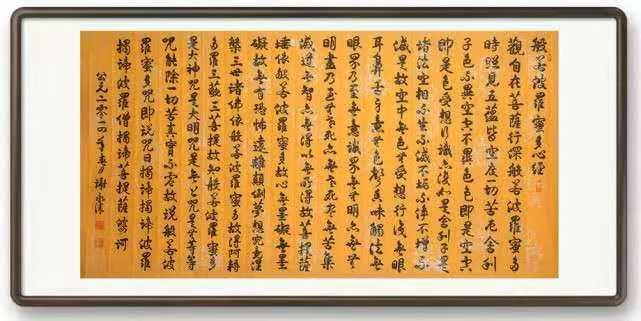 般若波羅蜜多心經
觀自在菩薩行深般若波羅蜜多
時照見五蘊皆空度一切苦厄舍利
子色不異空空不異色色即是空空
即是色受想行識亦復如是舍利子是
諸法空相不生不滅不垢不淨不增不
減是故空中無色無受想行識無眼
耳鼻舌身意無色聲香味觸法無
眼界乃至無意識界無無明亦無無
明盡乃至無老死亦無老死盡無苦集
滅道無智亦無得以無所得故菩提薩
埵依般若波羅蜜多故心無罣礙無罣
礙故無有恐怖遠離顛倒夢想究竟涅
槃三世諸佛依般若波羅蜜多故得阿耨
多羅三藐三菩提故知般若波羅蜜多
是大神咒是大明咒是無上咒是無等等
咒能除一切苦真實不虛故說般若波
羅蜜多咒即說咒曰揭諦揭諦波羅
揭諦波羅僧揭諦菩提薩婆訶
公元二〇一四年春月謝